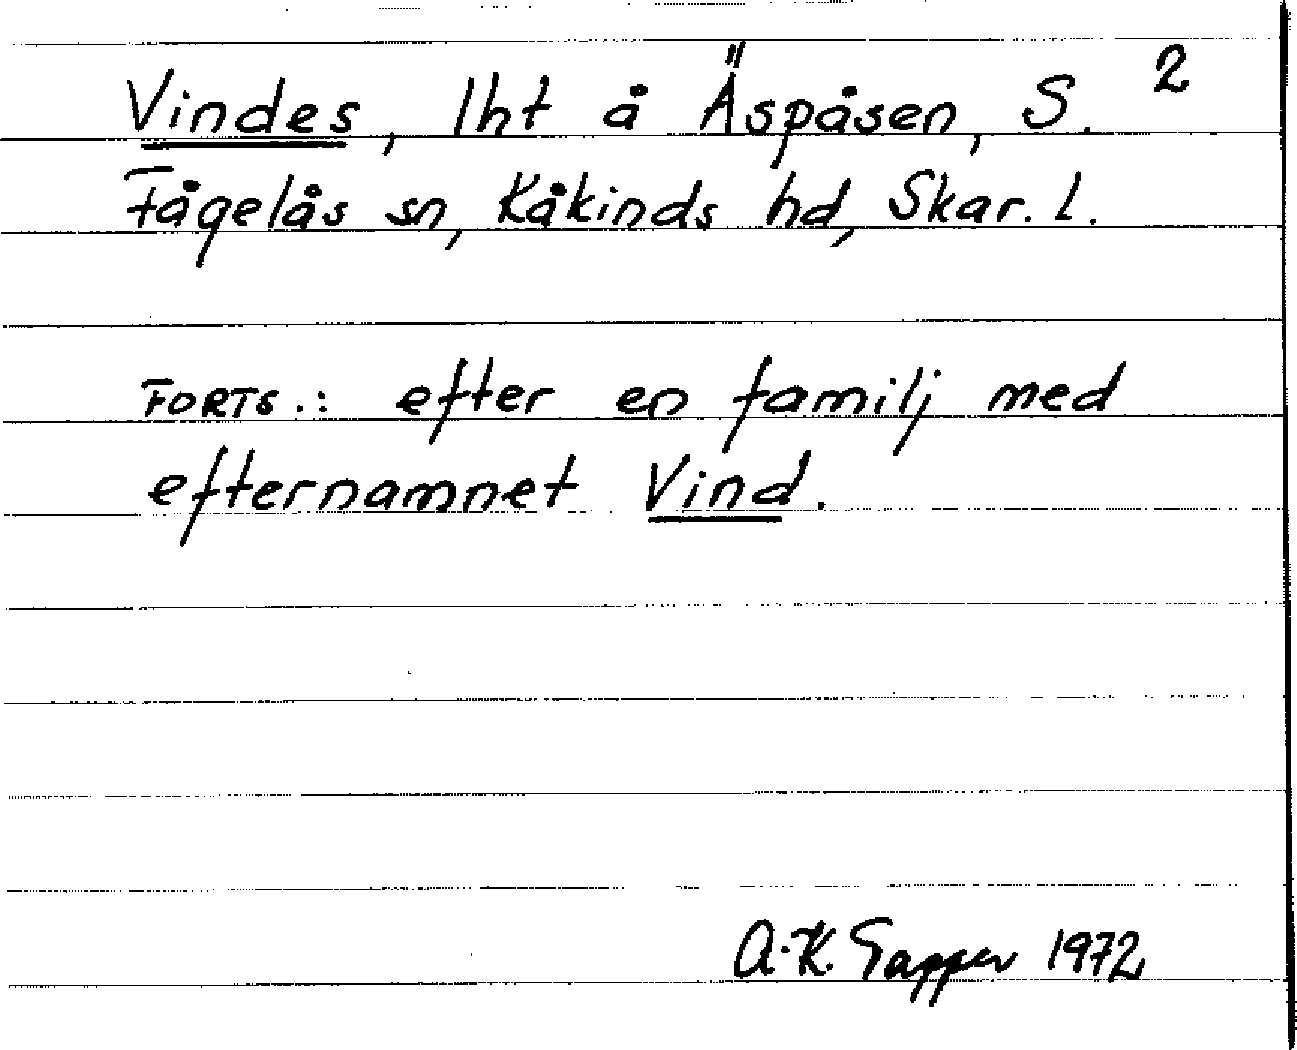 Vindes, lht å Äspåsen, S. 2
Fågelås sn, Kåkinds hd, Skar. l.
FORTS.: efter en familj med
efternamnet Vind.
A-K. Tapper 1972